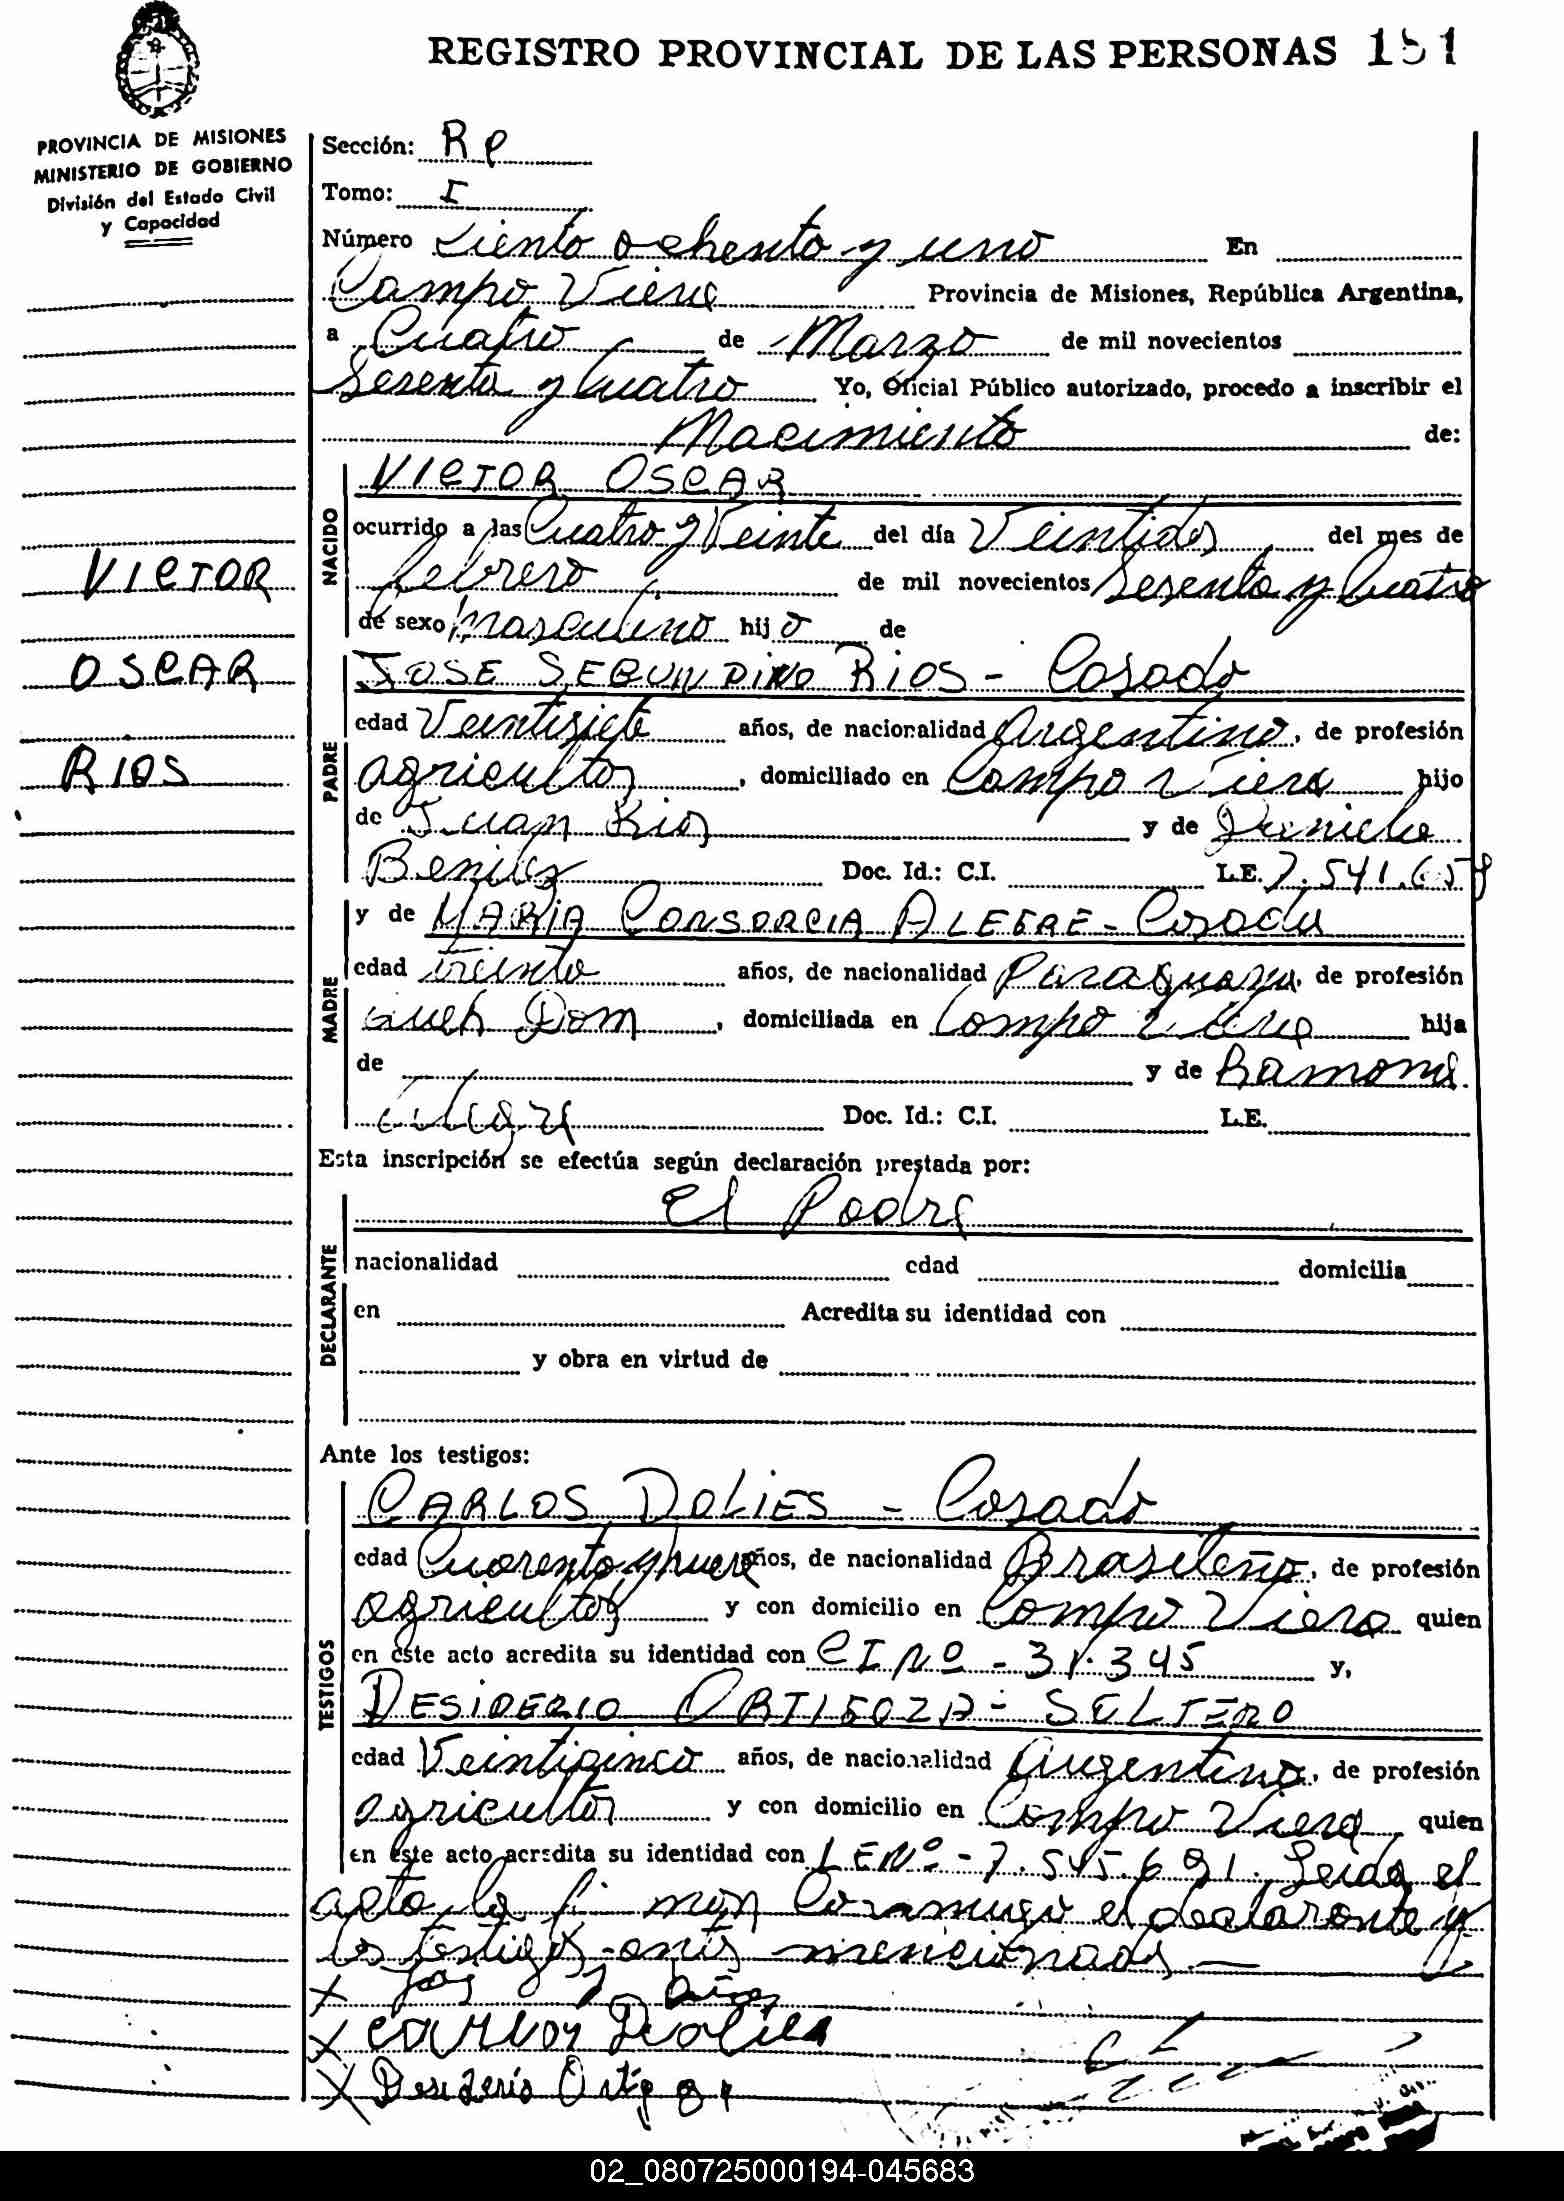 REGISTRO PROVINCIAL DE LAS PERSONAS 181
PROVINCIA DE MISIONES
MINISTERIO DE GOBIERNO
División del Estado Civil
y Capacidad
VICTOR
OSCAR
RIOS
Sección: RP
Tomo: I
Número Ciento ochenta y uno En
Campo Viera Provincia de Misiones, República Argentina,
a Cuatro de Marzo de mil novecientos
Sesenta y Cuatro Yo, Oficial Público autorizado, procedo a inscribir el
Nacimiento de:
NACIDO
VICTOR OSCAR
ocurrido a las Cuatro y Veinte del día Veintidos del mes de
febrero de mil novecientos Sesenta y Cuatro
de sexo masculino hijo de
PADRE
JOSE SEGUNDINO RIOS - Casado
edad Veintisiete años, de nacionalidad Argentino, de profesión
agricultor, domiciliado en Campo Viera hijo
de Juan Rios y de
Benitez Doc. Id.: C.I. L.E. 7.541.65
MADRE
y de MARIA CONSORCIA ALEGRE - Casada
edad treinta años, de nacionalidad Paraguaya, de profesión
Queh Dom, domiciliada en Campo Viera hija
de y de Ramona
Alegre Doc. Id.: C.I. L.E.
Esta inscripción se efectúa según declaración prestada por:
DECLARANTE
El Padre
nacionalidad edad domicilia
en Acredita su identidad con
y obra en virtud de
Ante los testigos:
TESTIGOS
CARLOS DOLIES - Casado
edad Cuarenta y nueve años, de nacionalidad Brasileño, de profesión
agricultor y con domicilio en Campo Viera quien
en este acto acredita su identidad con CI Nº - 31.345 y,
DESIDERIO ORTIGOZA - SOLTERO
edad Veinticinco años, de nacionalidad Argentino, de profesión
agricultor y con domicilio en Campo Viera quien
en este acto acredita su identidad con LE Nº - 7.545.691. Leida el
acta, la firman Conmigo el declarante y
los testigos antes mencionados.—
X Jos Rios
X Carlos Dolies
X Desiderio Ortigoza
02_080725000194-045683